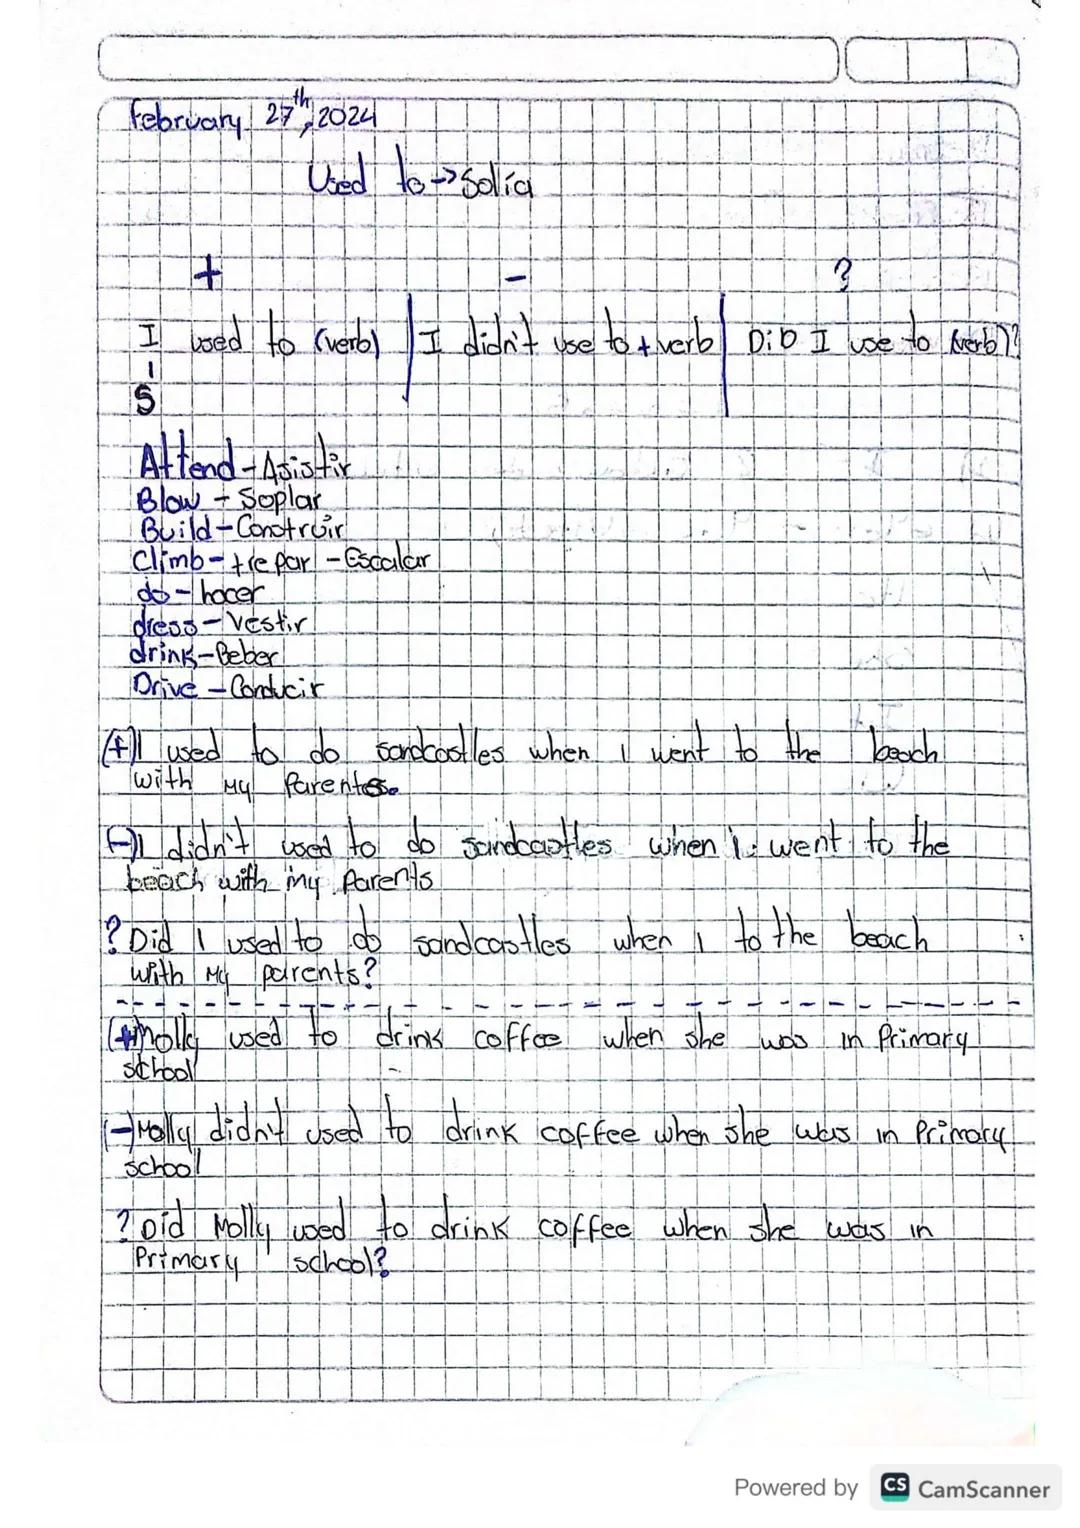 February 27th, 2024
Used to → Solía
+ - ?
I used to (verb) | I didn't use to + verb | Did I use to (verb)?
S
Attend - Asistir
Blow - Soplar
Build - Construir
Climb - trepar - Escalar
do - hacer
dress - Vestir
drink - Beber
Drive - Conducir
(+) I used to do sandcastles when I went to the beach
with My Parents.
(-) I didn't used to do sandcastles when i went to the
beach with my Parents
? Did I used to do sandcastles when I to the beach
with My parents?
(+) Molly used to drink coffee when she was in Primary
school
(-) Molly didn't used to drink coffee when she was in Primary
school
? Did Molly used to drink coffee when she was in
Primary school?
Powered by CS CamScanner